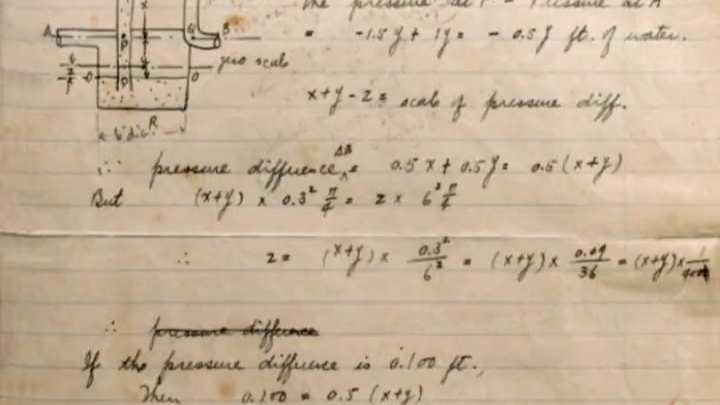 the pressure at P = Pressure at A
= -1.5 y + 1 y = - 0.5 y ft. of water.
A
B
P
Q
x
zero scale
O
O
x+y-z = scale of pressure diff.
6" dia
R
∴ pressure difference AB = 0.5 x + 0.5 y = 0.5 (x+y)
But (x+y) x 0.3² π/4 = z x 6² π/4
∴ z = (x+y) x 0.3²/6² = (x+y) x 0.09/36 = (x+y) x 1/400
∴ pressure difference
If the pressure difference is 0.100 ft.,
Then 0.100 = 0.5 (x+y)